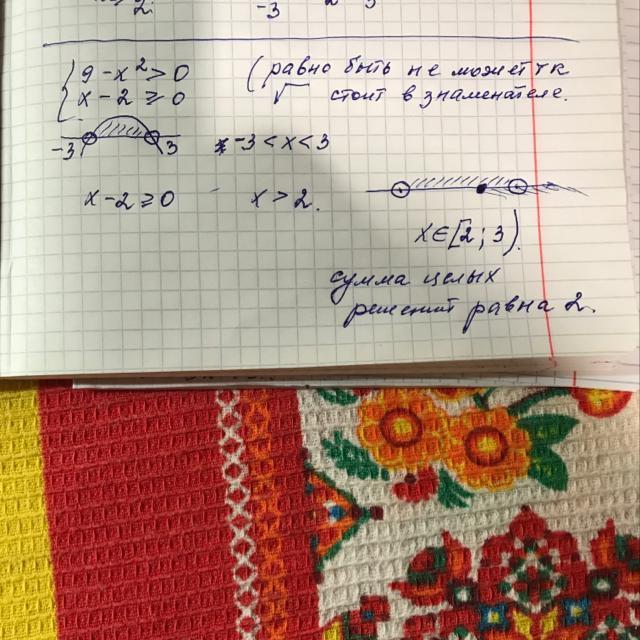 2. -3 2 3
{ 9 - x² > 0
x - 2 ≥ 0
( равно быть не может тк
√ стоит в знаменателе.
-3 3 -3 < x < 3
x - 2 ≥ 0 x > 2.
x ∈ [2; 3).
сумма целых
решений равна 2.